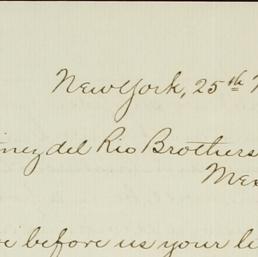 New York, 25th
del Rio Brothers
before us your